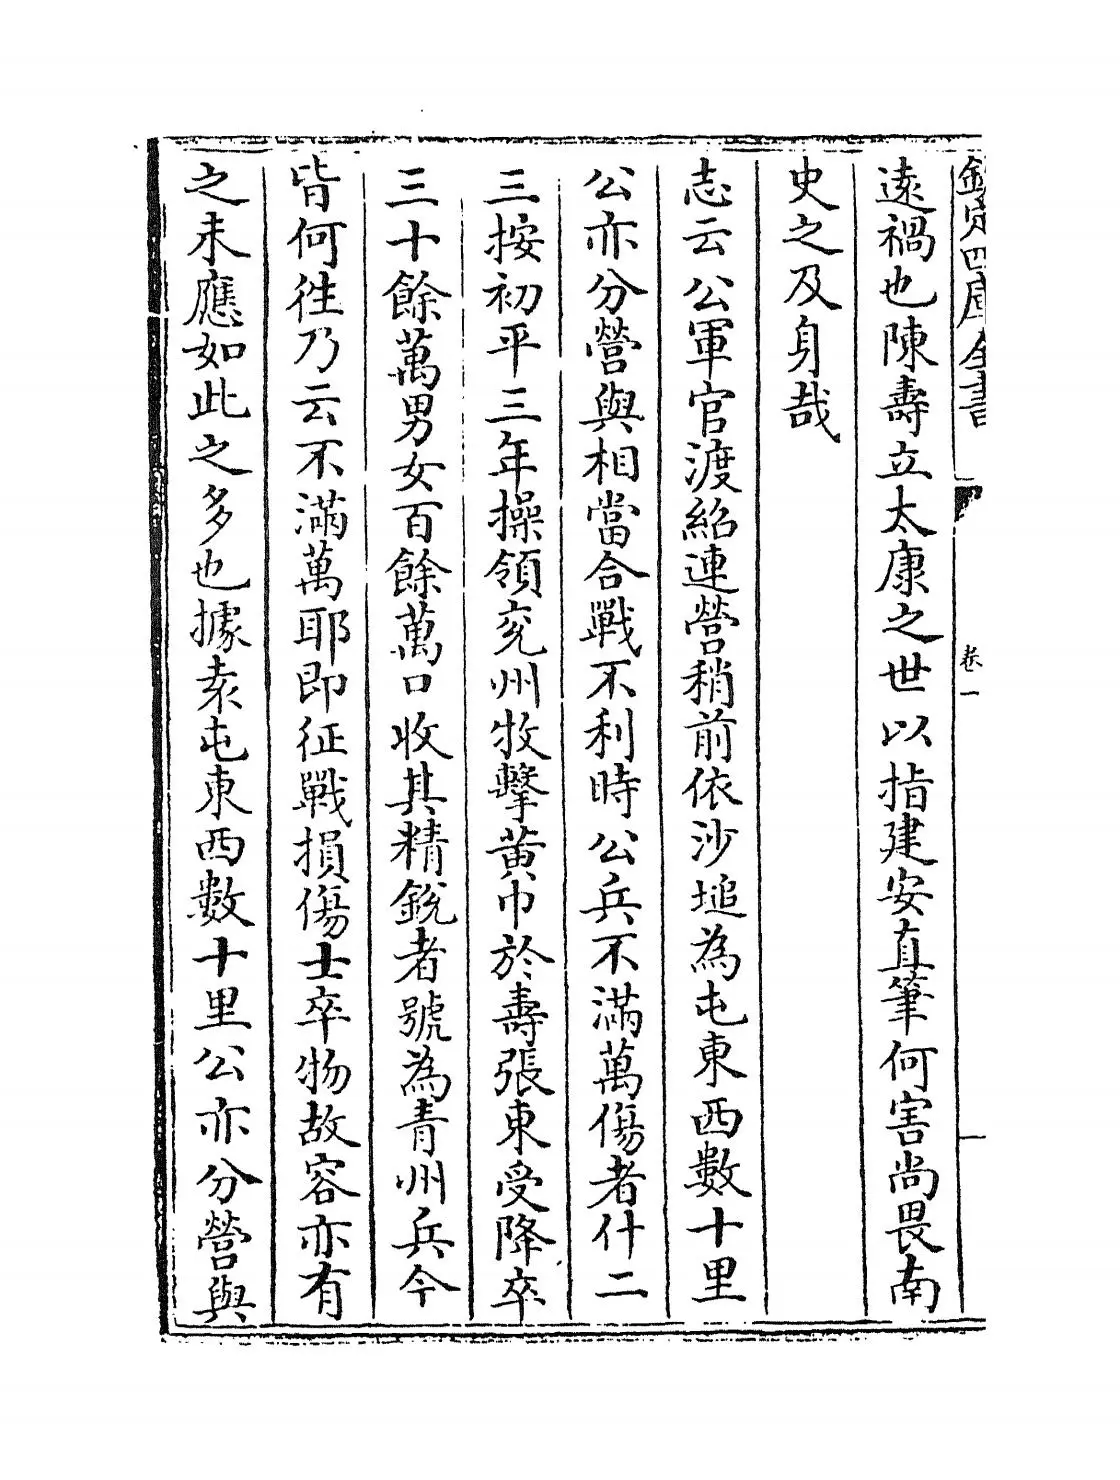 欽定四庫全書
卷一
遠禍也陳壽立太康之世以指建安直筆何害尚畏南
史之及身哉
志云公軍官渡紹連營稍前依沙塠為屯東西數十里
公亦分營與相當合戰不利時公兵不滿萬傷者什二
三按初平三年操領兖州牧擊黄巾於壽張東受降卒
三十餘萬男女百餘萬口收其精銳者號為青州兵今
皆何徃乃云不滿萬耶即征戰損傷士卒物故容亦有
之未應如此之多也據袁屯東西數十里公亦分營與